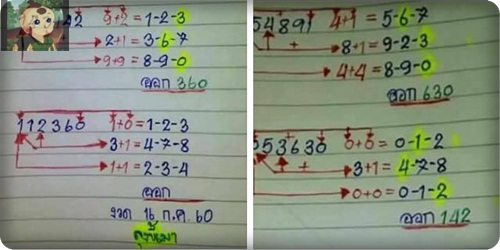 9+2 = 1-2-3
2+1 = 3-6-7
9+9 = 8-9-0
ออก 360
112360 1+0 = 1-2-3
3+1 = 4-7-8
1+1 = 2-3-4
ออก
งวด 16 ก.ค. 60
5489 4+1 = 5-6-7
8+1 = 9-2-3
4+4 = 8-9-0
ออก 630
553630 0+0 = 0-1-2
3+1 = 4-7-8
0+0 = 0-1-2
ออก 142